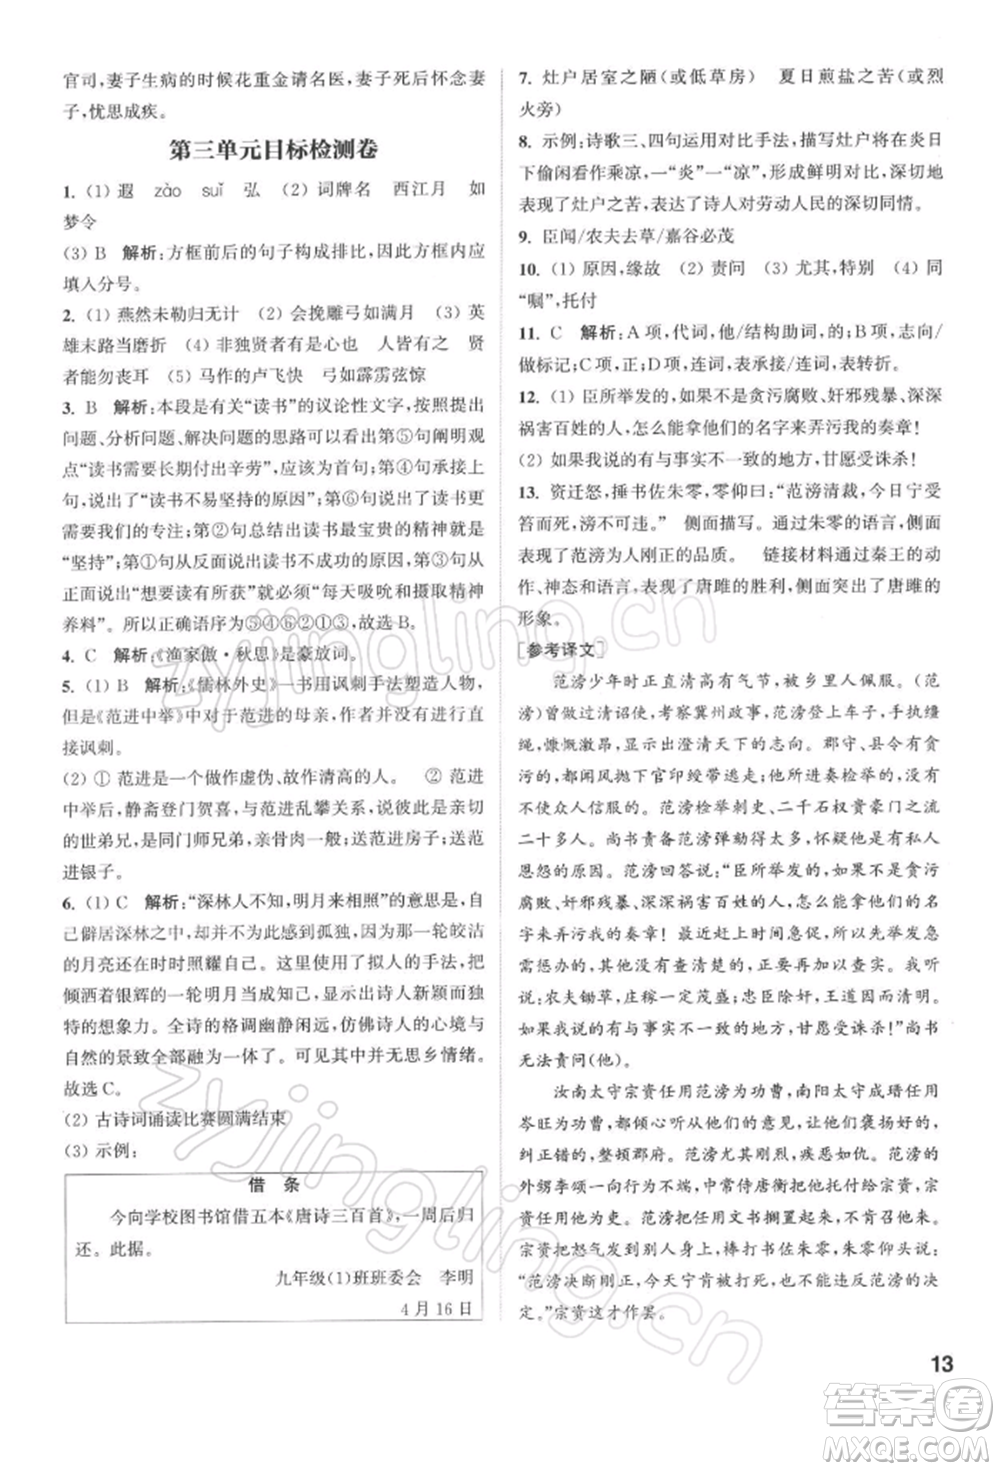 官司,妻子生病的时候花重金请名医,妻子死后怀念妻
子,忧思成疾。
第三单元目标检测卷
1. (1) 遐 zǎo suǐ 弘 (2) 词牌名 西江月 如
梦令
(3) B 解析:方框前后的句子构成排比,因此方框内应
填入分号。
2. (1) 燕然未勒归无计 (2) 会挽雕弓如满月 (3) 英
雄末路当磨折 (4) 非独贤者有是心也 人皆有之 贤
者能勿丧耳 (5) 马作的卢飞快 弓如霹雳弦惊
3. B 解析:本段是有关“读书”的议论性文字,按照提出
问题、分析问题、解决问题的思路可以读出第⑤句阐明观
点“读书需要长期付出辛劳”,应该为首句;第④句承接上
文,说出了“读书不易坚持的原因”;第⑥句从意义上说需
要我们的专注;第②句总结出读书最宝贵的精神就是
“坚持”;第①句从反面说出读书不成功的原因,第③句说
“想读书有所获”就必须“每时每刻地吸吮和消化精神
养料”。所以正确语序为⑤④⑥②①③,故选 B。
4. C 解析:《渔家傲·秋思》是豪放词。
5. (1) B 解析:《儒林外史》一书用讽刺手法塑造人物,
《范进中举》中对于范进的母亲,作者并没有进行直
接讽刺。
(2) ① 范进是一个做作虚伪、故作清高的人。 ② 范进
中举后,静斋登门贺喜,与范进乱攀关系,说成是亲切
的世弟兄,是同门师兄弟,亲骨肉一般;送范进房子;送范
进银子。
6. (1) C 解析:“深林人不知,明月来相照”意思是,自
己僻居深林之中,却并不为此感到孤独,因为那一轮皎洁
的月亮还在时时照耀自己。这里使用了拟人的手法,把
倾洒着银辉的一轮明月当成知己,显示出诗人新颖而独特
的想象力。全诗的格调幽静闲远,仿佛诗人的心境与
自然的景致全部融为一体了,并无思乡情绪。
故选 C。
(2) 古诗词诵读比赛圆满结束
(3) 示例:
借 条
今向学校图书馆借五本《唐诗三百首》,一周后归
还。此据。
九年级(1)班班委会 李明
4 月 16 日
7. 灶户居室之陋(或低草房) 夏日煎盐之苦(或烈
火旁)
8. 示例:诗歌三、四句运用对比手法,描写灶户在炎日
下偷闲看作乘凉,一“炎”一“凉”,形成鲜明对比,深切地
表现了灶户之苦,表达了诗人对劳动人民的深切同情。
9. 臣闻/农夫去草/嘉谷必茂
10. (1) 原因,缘故 (2) 责问 (3) 尤其,特别 (4) 同
“嘱”,托付
11. C 解析:A 项,代词,他/结构助词,的;B 项,志向/
做标记;C 项,正;D 项,连词,表承接/连词,表转折。
12. (1) 臣所举发的,如果不是贪污腐败、奸邪残暴、深深
祸害百姓的人,怎么会用他们的名字来弄污我的奏章!
(2) 如果我所说的有与事实不一致的地方,甘愿受诛杀!
13. 资迁怒,捶书佐朱零,零仰曰:“范滂清裁,今日宁受
笞而死,滂不可违。” 侧面描写。通过朱零的语言,侧面
表现了范滂为人刚正的品质。 链接材料通过秦王的动
作、神态和语言,表现了唐雎的胜利,侧面突出了唐雎的
形象。
[参考译文]
范滂少年时正直清高有气节,被州里人佩服。(范
滂)曾做过清诏使,考察冀州政事,范滂登上车子,手执缰
绳,慷慨激昂,显示出澄清天下的志向。郡守、县令有贪
污的,都闻风抛下官印绶带逃走;他所上奏检举的,没有
不使众人信服的。范滂检举刺史、二千石权贵豪门之流
二十多人。尚书责备范滂弹劾得太多,怀疑是有私人
恩怨的原因。范滂回答说:“臣所举发的,如果不是贪污
腐败、奸邪残暴、深深祸害百姓的人,怎么会用他们的名
字来弄污我的奏章!只是近日时间急促,所以先举发急
需惩办的,还有没有查清楚的,将再加以查实。我听
说:农夫锄草,庄稼一定茂盛;忠臣除奸,王道因而清明。
如果我所说的有与事实不一致的地方,甘愿受诛杀!”尚书
无法责问(他)。
汝南太守宗资任用范滂为功曹,南阳太守成瑨任用
岑晊为功曹,都委托他们全心管理政务,让他们褒扬好的,
纠正错的,整顿郡府。范滂尤其刚正,痛恨邪恶。范滂的
外甥李颂一向行为不端,中常侍唐衡把他托付给宗资,宗
资任用他做官吏,范滂把任用文书搁置而不召他来。
宗资把怒气发到别人身上,棒打书佐朱零,朱零仰头说:
“范滂决断刚正,今天宁肯被打死,也不能违反范滂的决
定。”宗资这才作罢。
13
zyjingling.cn
zyjingling.cn
答案卷
MXQE.COM